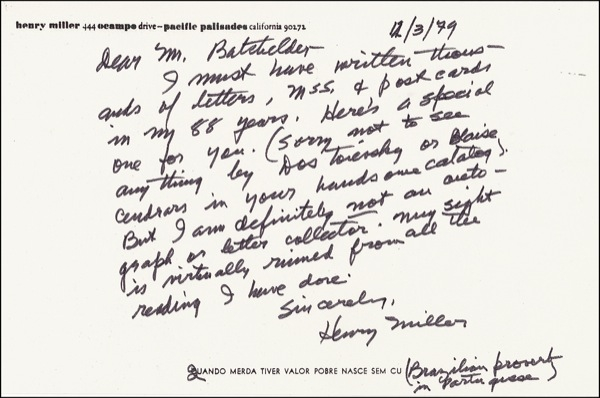 henry miller 444 ocampo drive—pacific palisades california 90272
12/3/79
Dear Mr. Batchelder
I must have written thous-
ands of letters, Mss. & post cards
in my 88 years. Here's a special
one for you. (Sorry not to see
anything by Dostoievsky or Blaise
Cendrars in your handsome catalog).
But I am definitely not an auto-
graph or letter collector. My sight
is virtually ruined from all the
reading I have done.
Sincerely,
Henry Miller
QUANDO MERDA TIVER VALOR POBRE NASCE SEM CU (Brazilian proverb
in Portuguese)